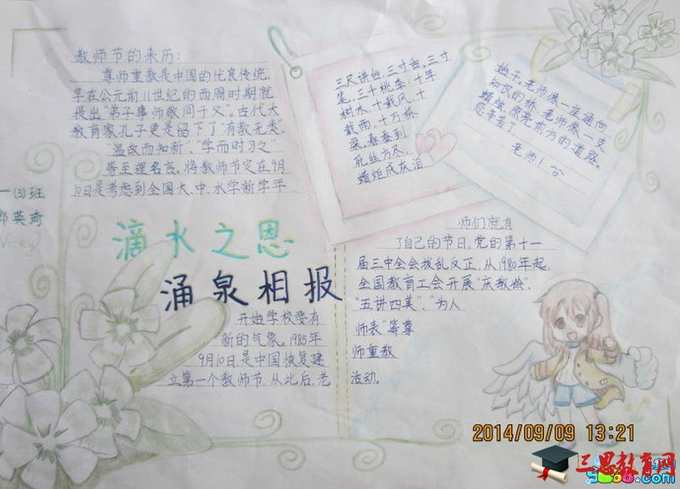 教师节的来历:
尊师重教是中国的优良传统,
早在公元前11世纪的西周时期就
提出"弟子事师敬同于父"。古代大
教育家孔子更是留下了"有教无类"、
"温故而知新"、"学而时习之"
等至理名言。将教师节定在9月
10日是考虑到全国大、中、小学新学年
三尺讲台,三寸舌,三寸
笔,三千桃李;十年
树木,十载风,十
载雨,十万栋
梁,春蚕到
死丝方尽,
蜡炬成灰泪
一(3)班
英
滴水之恩
涌泉相报
开始,学校要有
新的气象。1985年
9月10日是中国恢复建
立第一个教师节,从此后,老
师们便有
了自己的节日,党的第十一
届三中全会拨乱反正,从1980年起,
全国教育工会开展
"五讲四美"、"为人
师表"等尊
师重教
活动。
2014/09/09 13:21
三思教育网